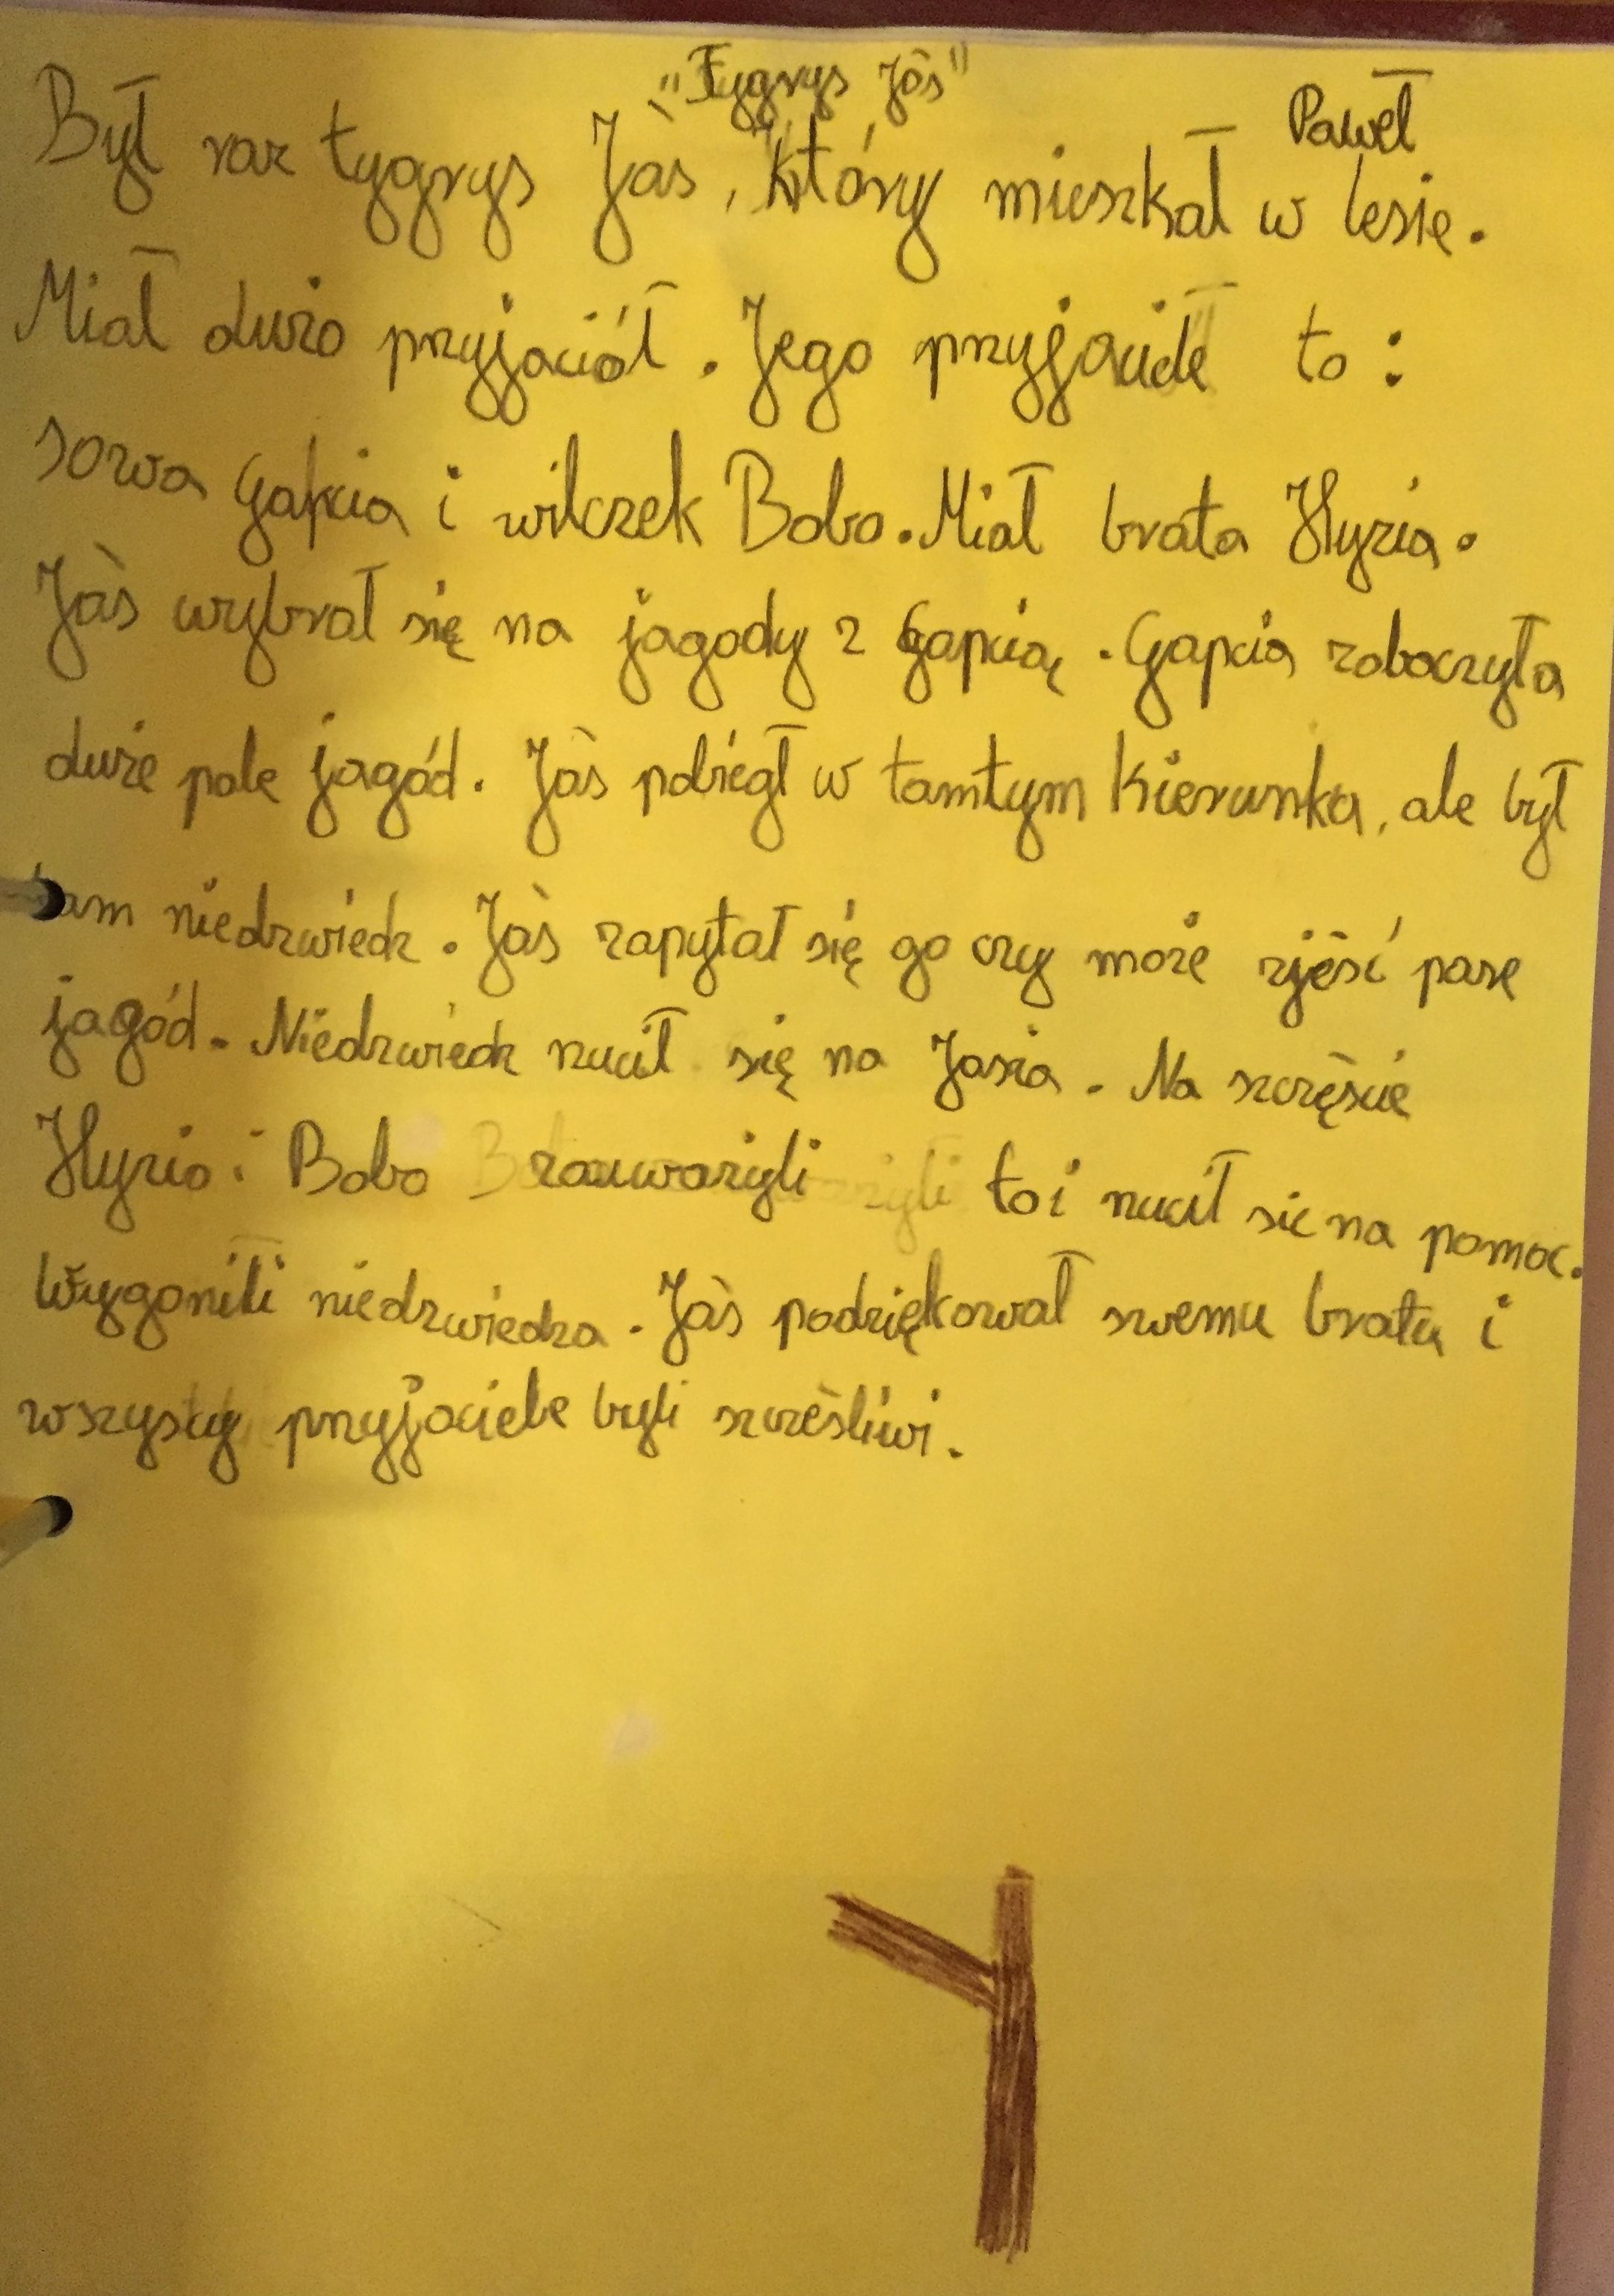 "Tygrys Jaś"
Paweł
Był raz tygrys Jaś, który mieszkał w lesie.
Miał dużo przyjaciół. Jego przyjaciele to:
sowa Gapcia i wilczek Bobo. Miał brata Hyzia.
Jaś wybrał się na jagody z Gapcią. Gapcia zobaczyła
duże pole jagód. Jaś pobiegł w tamtym kierunka, ale był
tam niedzwiedz. Jaś zapytał się go czy może zjeść parę
jagód. Niedzwiedz rzucił się na Jasia. Na szczęście
Hyzio i Bobo zauwarzyli to i rzucił sie na pomoc.
Wygonili niedzwiedza. Jaś podziękował swemu bratu i
wszyscy przyjaciele byli szcześliwi.